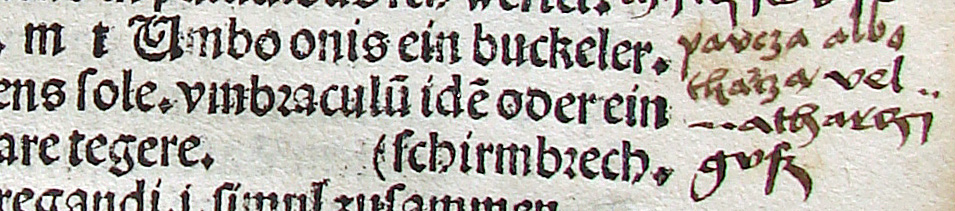 m t Umbo onis ein buckeler. pavcza albo
ens sole. vmbraculū idē oder ein tharcza vel
are tegere. (schirmbrech.
regandi. i. simul zusammen